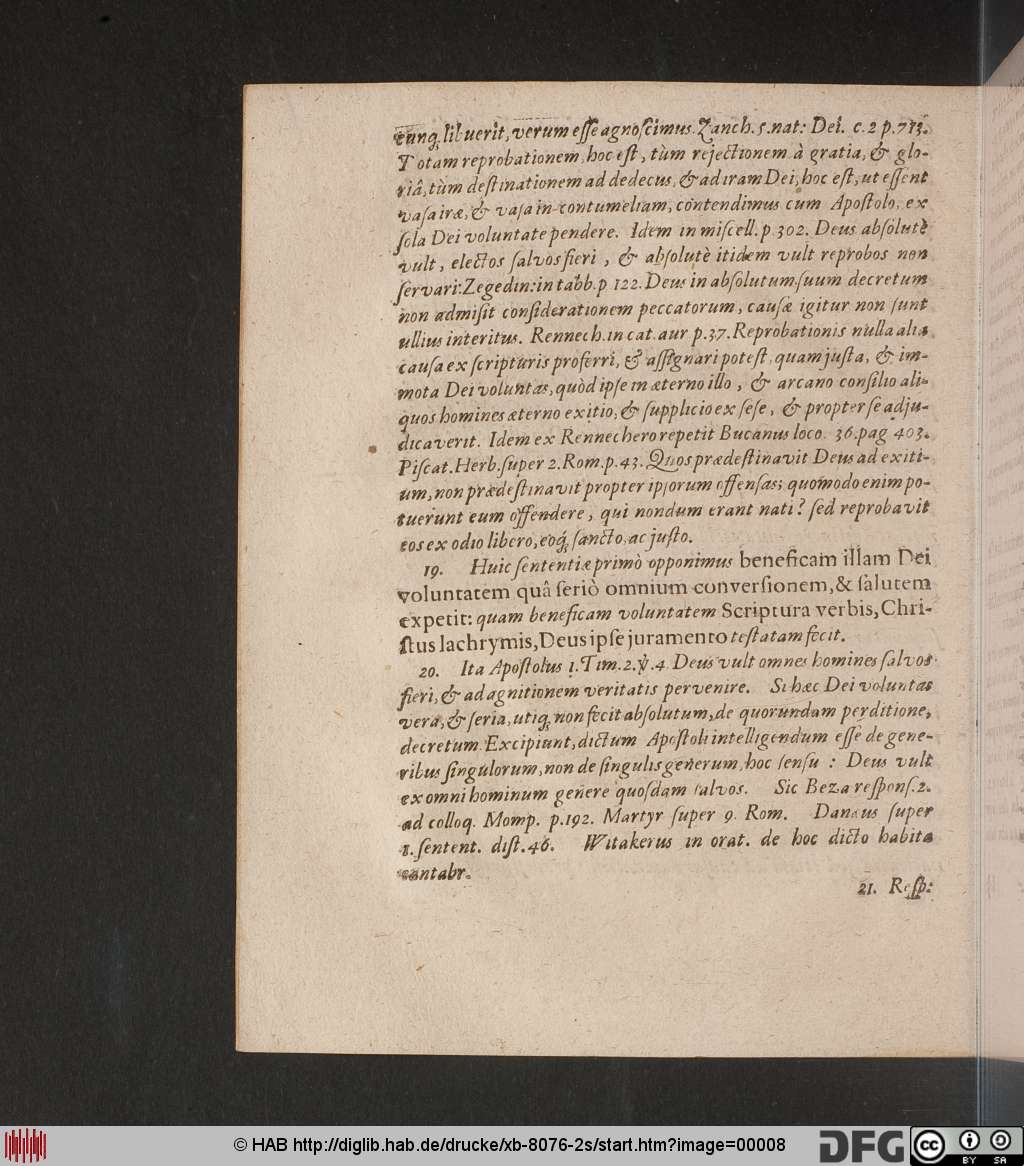 cunq́; libuerit, verum eſſe agnoſcimus. Zanch. 5. nat: Dei. c. 2 p. 713.
Totam reprobationem, hoc eſt, tùm rejectionem à gratia, & glo-
riâ, tùm deſtinationem ad dedecus, & ad iram Dei, hoc eſt, ut eſſent
vaſa iræ, & vaſa in contumeliam, contendimus cum Apoſtolo, ex
ſola Dei voluntate pendere. Idem in miſcell. p. 302. Deus abſolutè
vult, electos ſalvos fieri, & abſolutè itidem vult reprobos non
ſervari: Zegedin: in tabb. p 122. Deus in abſolutum ſuum decretum
non admiſit conſiderationem peccatorum, cauſæ igitur non ſunt
ullius interitus. Rennech. in cat. aur p. 37. Reprobationis nulla alia
cauſa ex ſcripturis proferri, & aſſignari poteſt, quam juſta, & im-
mota Dei voluntas, quòd ipſe in æterno illo, & arcano conſilio ali-
quos homines æterno exitio, & ſupplicio ex ſeſe, & propter ſe adju-
dicaverit. Idem ex Rennechero repetit Bucanus loco. 36. pag 403.
Piſcat. Herb. ſuper 2. Rom. p. 43. Quos prædeſtinavit Deus ad exiti-
um, non prædeſtinavit propter ipſorum offenſas; quomodo enim po-
tuerunt eum offendere, qui nondum erant nati? ſed reprobavit
eos ex odio libero, eoq́; ſancto, ac juſto.
19. Huic ſententiæ primò opponimus beneficam illam Dei
voluntatem quâ ſeriò omnium converſionem, & ſalutem
expetit: quam beneficam voluntatem Scriptura verbis, Chri-
ſtus lachrymis, Deus ipſe juramento teſtatam fecit.
20. Ita Apoſtolus 1. Tim. 2. ℣. 4. Deus vult omnes homines ſalvos
fieri, & ad agnitionem veritatis pervenire. Si hæc Dei voluntas
vera, & ſeria, utiq; non fecit abſolutum, de quorundam perditione,
decretum. Excipiunt, dictum Apoſtoli intelligendum eſſe de gene-
ribus ſingulorum, non de ſingulis generum, hoc ſenſu : Deus vult
ex omni hominum genere quoſdam ſalvos. Sic Beza reſponſ. 2.
ad colloq. Momp. p. 192. Martyr ſuper 9. Rom. Danæus ſuper
1. ſentent. diſt. 46. Witakerus in orat. de hoc dicto habita
cantabr.
21. Reſp:
© HAB http://diglib.hab.de/drucke/xb-8076-2s/start.htm?image=00008
DFG
cc BY SA